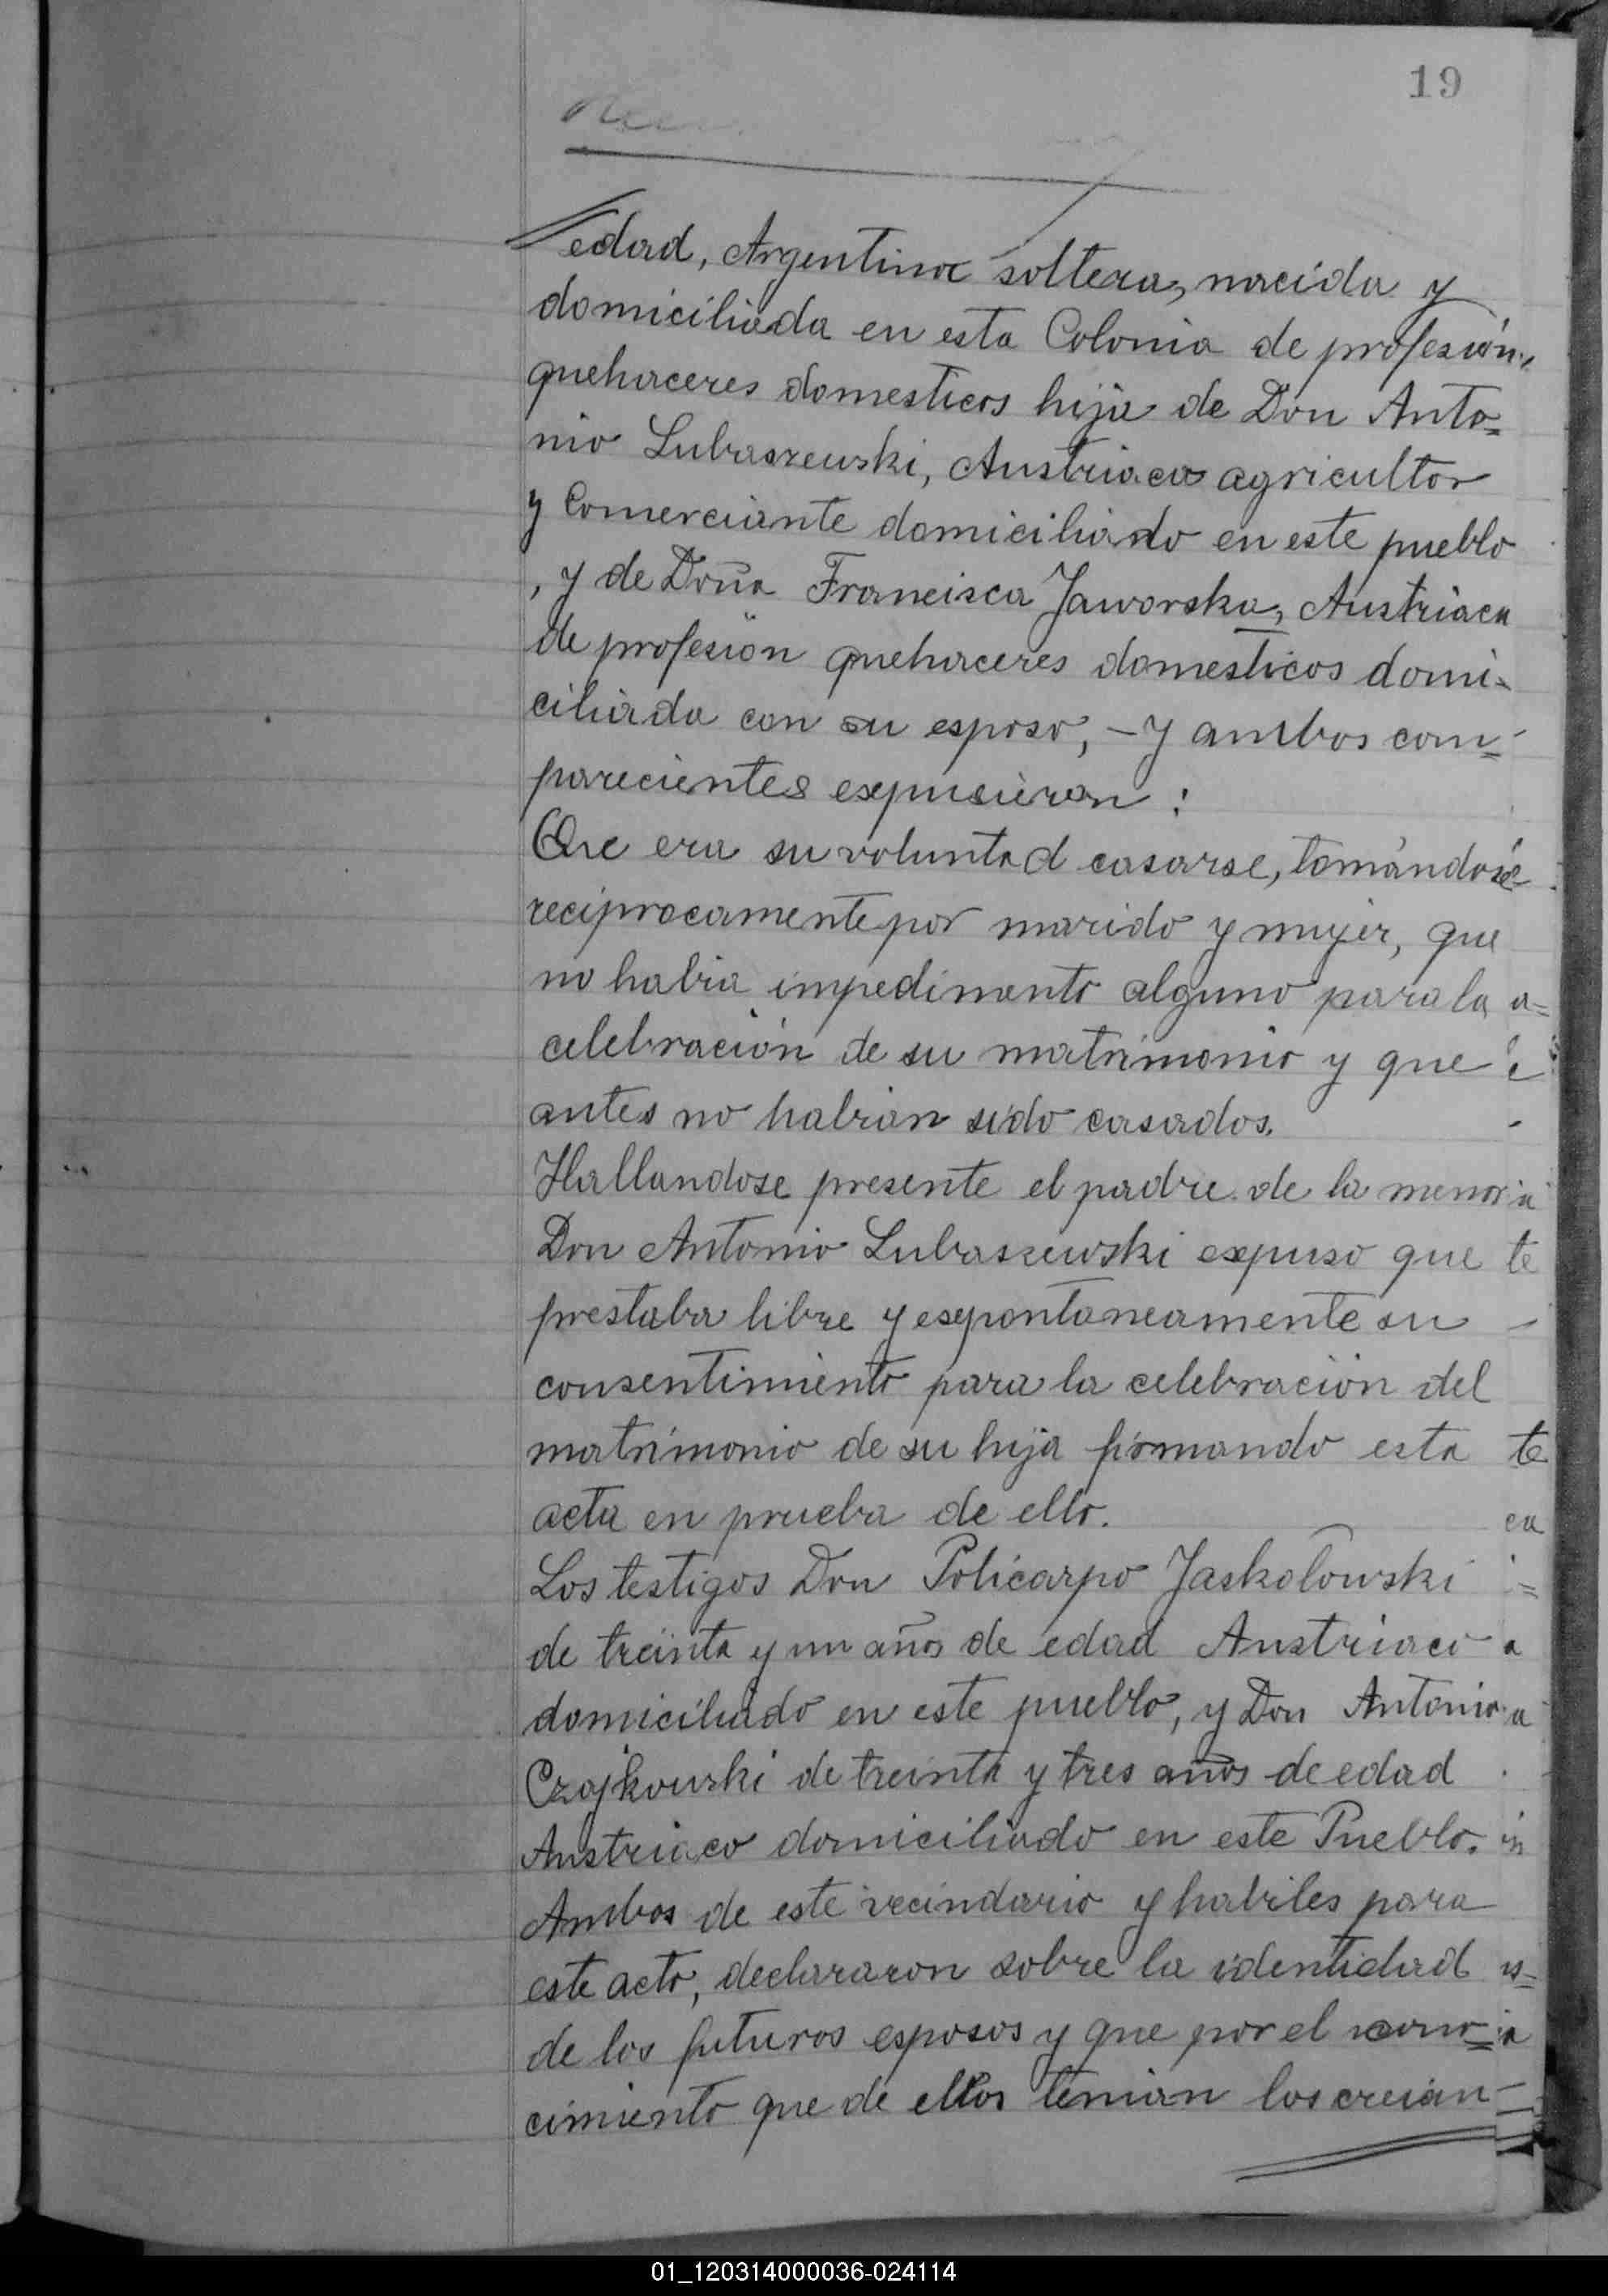 19
edad, Argentina soltera, nacida y
domiciliada en esta Colonia de profesión,
quehaceres domesticos hija de Don Anto=
nio Lubaszewski, Austriaco agricultor
y Comerciante domiciliado en este pueblo
, y de Doña Francisca Jaworska, Austriaca
de profesión quehaceres domesticos domi-
ciliada con su esposo, - Y ambos com=
parecientes expusieron :
Que era su voluntad casarse, tomándose
reciprocamente por marido y mujer, que
no habia impedimento alguno para la
celebración de su matrimonio y que
antes no habian sido casados.
Hallandose presente el padre de la menor
Don Antonio Lubaszewski expuso que
prestaba libre y espontaneamente su
consentimiento para la celebración del
matrimonio de su hija firmando esta
acta en prueba de ello.
Los testigos Don Policarpo Jaskolowski
de treinta y un años de edad Austriaco
domiciliado en este pueblo, y Don Antonio
Czajkowski de treinta y tres años de edad
Austriaco domiciliado en este Pueblo.
Ambos de este vecindario y habiles para
este acto, declararon sobre la identidad
de los futuros esposos y que por el cono=
cimiento que de ellos tenian los creian
01_120314000036-024114